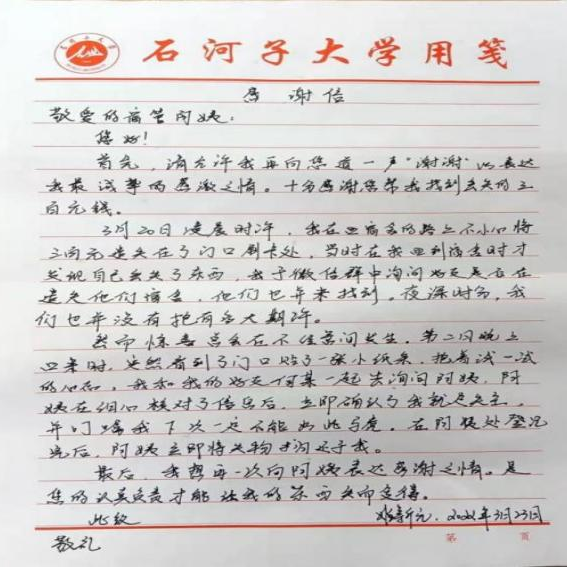 石河子大学用笺
感谢信
敬爱的宿管阿姨：
您好！
首先，请允许我再向您道一声“谢谢”以表达
我最诚挚的感激之情。十分感谢您帮我找到丢失的三
百元钱。
3月20日凌晨时许，我在回宿舍的路上不小心将
三百元遗失在了门口刷卡处，当时在我回到宿舍时才
发现自己丢失了东西，我于微信群中询问好友是否在
遗失他们宿舍，他们也并未找到。夜深时分，我
们也并没有抱有多大期许。
然而惊喜总会在不经意间发生。第二日晚上
回来时，突然看到了门口贴了一张小纸条，抱着试一试
的心态，我和我的好友何某一起去询问阿姨，阿
姨在细心核对了信息后，立即确认了我就是失主，
并叮嘱我下次一定不能如此马虎。在阿姨处登记
完后，阿姨立即将失物归还于我。
最后，我想再一次向阿姨表达感谢之情。是
您的认真负责才能让我的东西失而复得。
此致
新元．2022年3月23日
敬礼
第 页